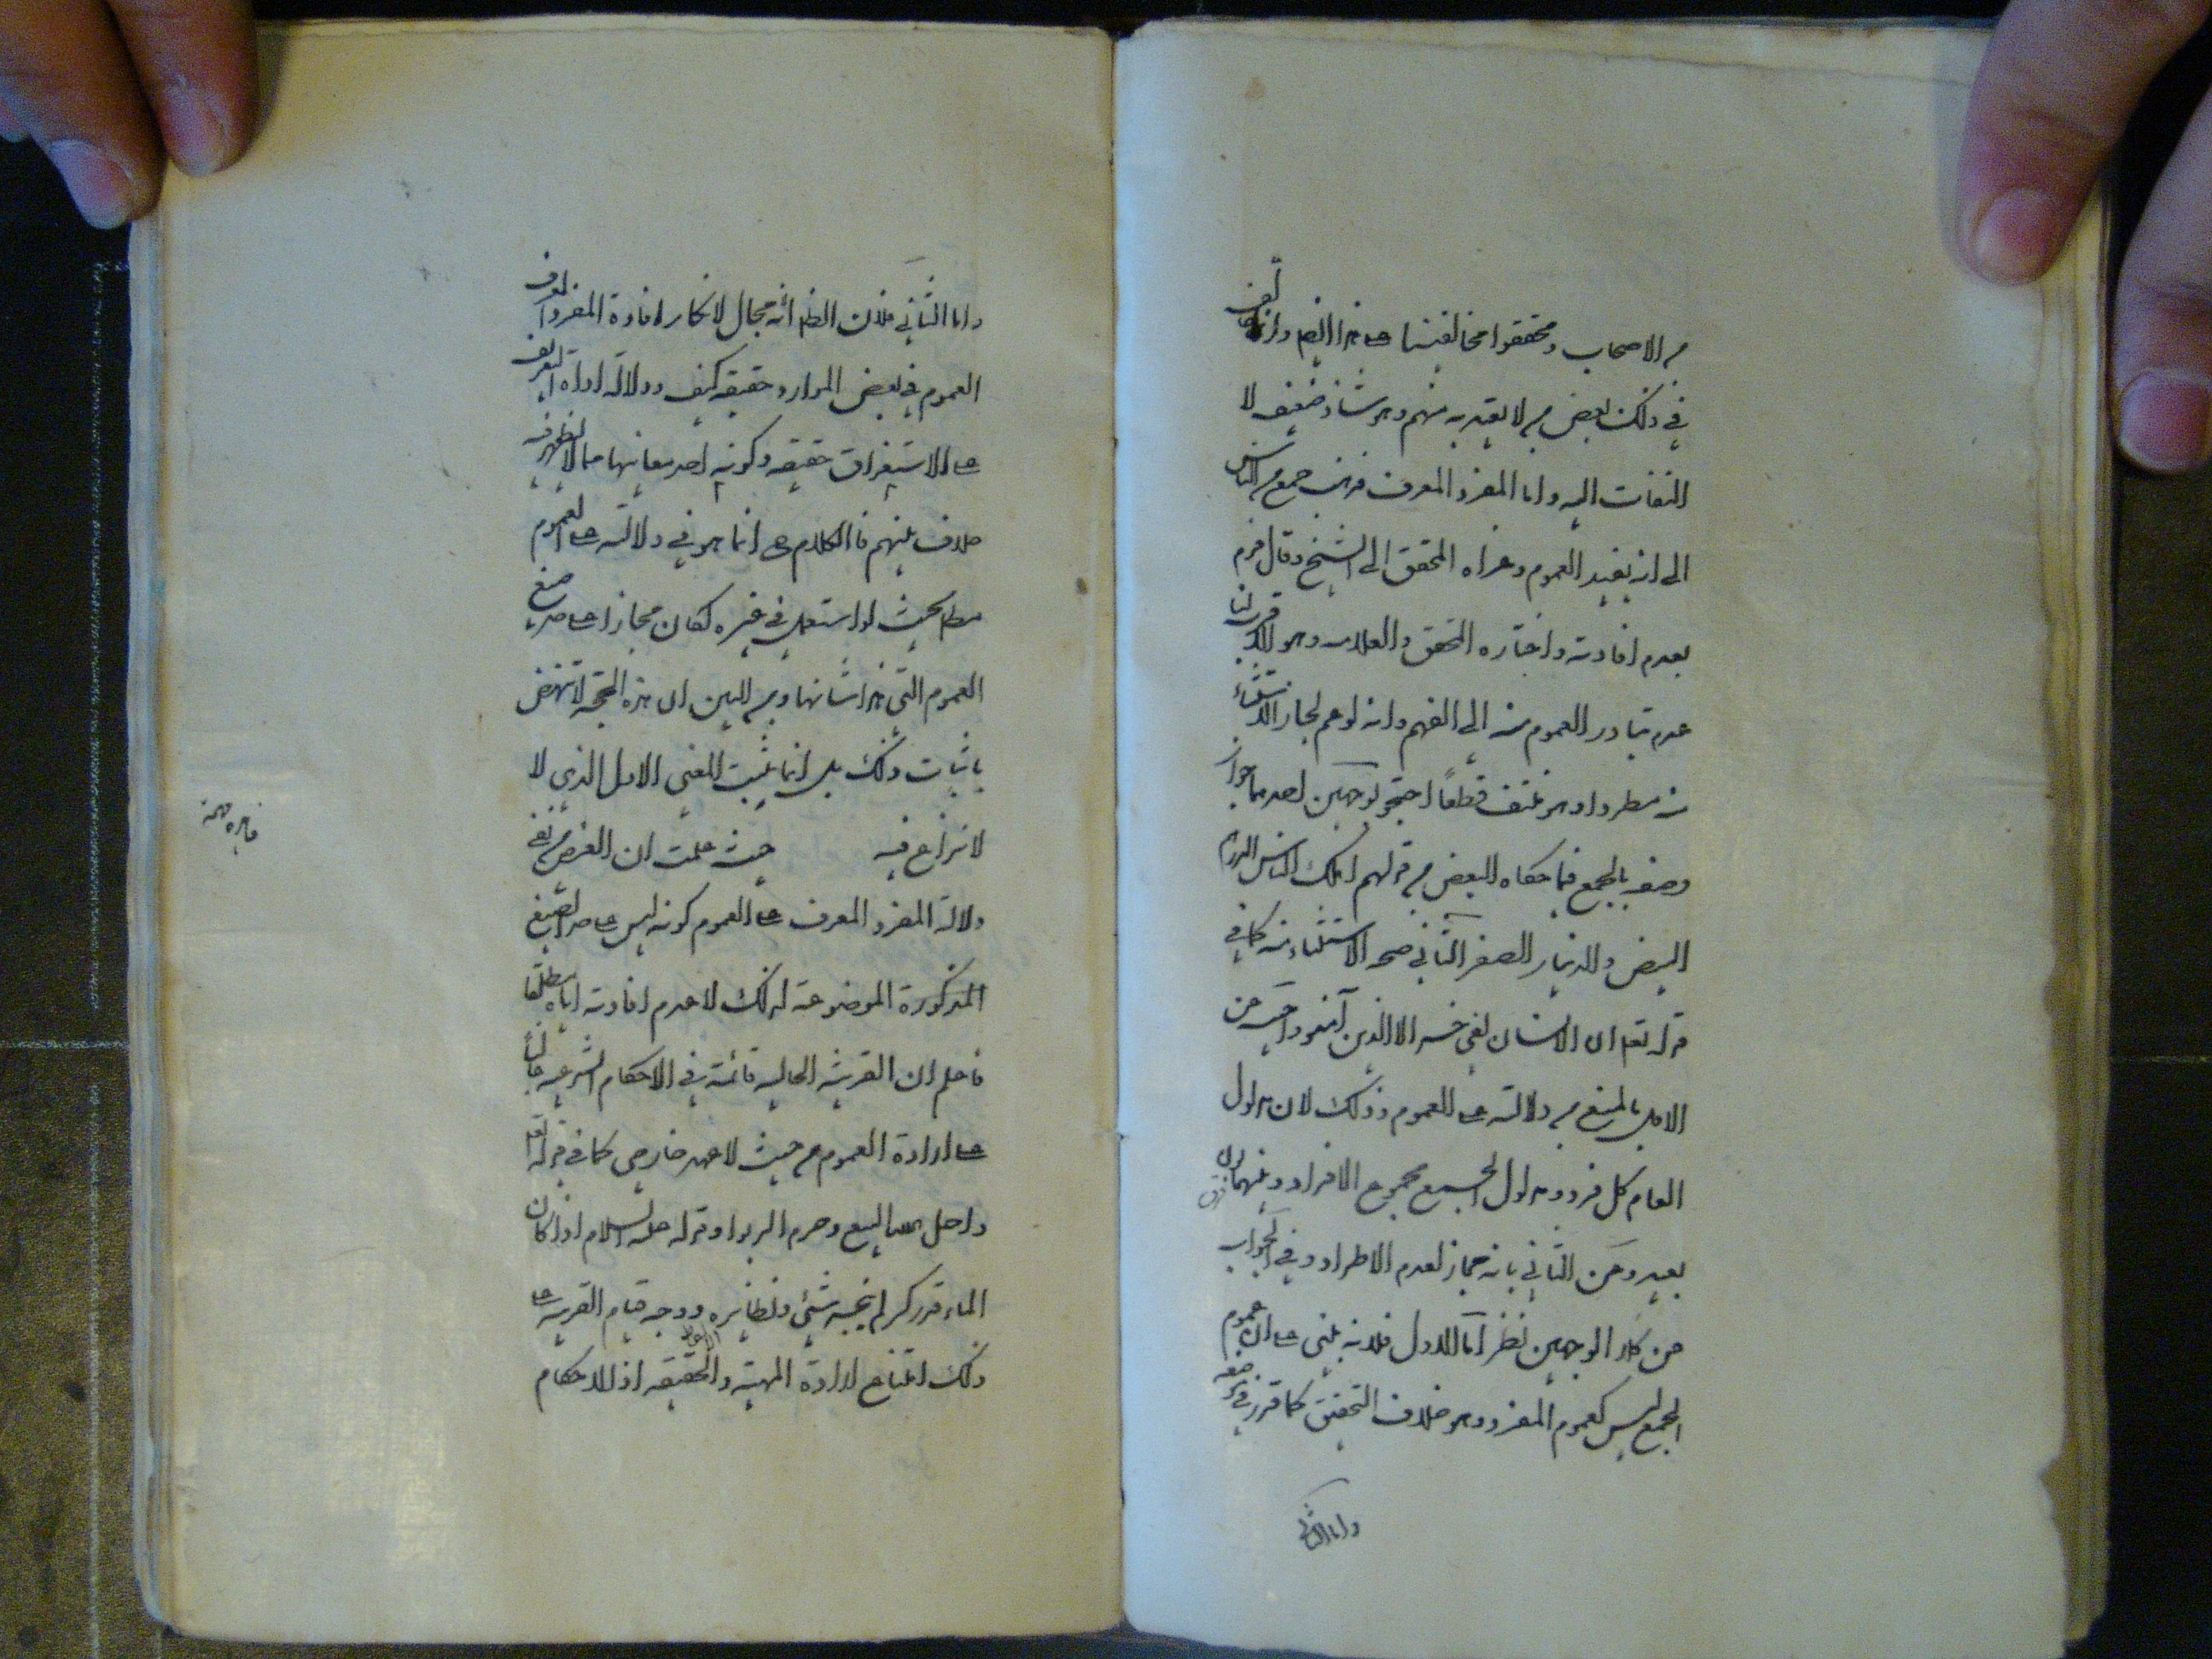 من الاصحاب ومحققوا مخالفينا على هذا ايضا وانما خالف
في ذلك بعض من لا يعتد به منهم وهو شاذ ضعيف لا
التفات اليه واما المفرد المعرف فذهب جمع من الناس
الى انه يفيد العموم وعزاه المحقق الى الشيخ وقال قوم
بعدم افادته واختاره المحقق والعلامة وهو الاقرب لنا
عدم تبادر العموم منه الى الفهم وانه لو عم لجاز الاستثناء
منه مطردا وهو منتف قطعا احتجوا بوجهين احدهما جواز
وصفه بالجمع فيما حكاه البعض من قولهم اهلك الناس الدرهم
البيض والدينار الصفر الثاني صحة الاستثناء منه كما في
قوله تعالى ان الانسان لفي خسر الا الذين آمنوا واجيب عن
الاول بالمنع من دلالته على العموم وذلك لان مدلول
العام كل فرد ومدلول الجمع مجموع الافراد وبينهما بون
بعيد وعن الثاني بانه مجاز لعدم الاطراد وفي الجواب
عن كلا الوجهين نظر اما الاول فلانه مبني على ان عموم
الجمع ليس كعموم المفرد وهو خلاف التحقيق كما قرر في موضعه
واما الثاني
واما الثاني فلان الظاهر انه لا مجال لانكار افادة المفرد المعرف
العموم في بعض الموارد حقيقة كيف ودلالة اداة التعريف
على الاستغراق حقيقة وكونه احد معانيها مما لا يظهر فيه
خلاف بينهم فالكلام ح انما هو في دلالته على العموم
مطلقا بحيث لو استعمل في غيره لكان مجازا على حد صيغ
العموم التي هذا شانها ومن البين ان هذه الحجة لا تنهض
باثبات ذلك بل انما تثبت المعنى الاول الذي لا
لا نزاع فيه حيث علمت ان الغرض من نفي
دلالة المفرد المعرف على العموم كونه ليس على حد الصيغ
المذكورة الموضوعة لذلك لا عدم افادته اياه مطلقا
فاعلم ان القرينة الحالية قائمة في الاحكام الشرعية غالبا
على ارادة العموم من حيث لا عهد خارجي كما في قوله تعالى
واحل الله البيع وحرم الربوا وقوله عليه السلام اذا كان
الماء قدر كر لم ينجسه شيئ ونظايره ووجه قيام القرينة على
ذلك امتناع ارادة المهية والحقيقة اذ الاحكام